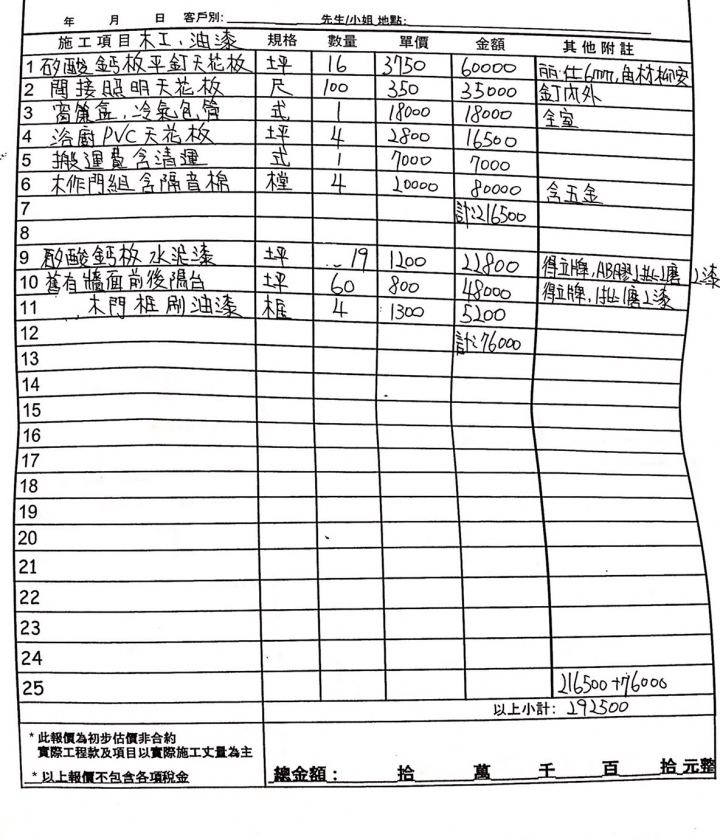 年 月 日 客戶別: 先生/小姐 地點:
施工項目 木工、油漆 規格 數量 單價 金額 其他附註
1 矽酸鈣板平釘天花板 坪 16 3750 60000 麗仕6mm,角材柳安
2 間接照明天花板 尺 100 350 35000 釘內外
3 窗簾盒,冷氣包管 式 1 18000 18000 全室
4 浴廚PVC天花板 坪 4 2800 16500
5 搬運費含清運 式 1 7000 7000
6 木作門組含隔音棉 樘 4 20000 80000 含五金
7 計:216500
8
9 矽酸鈣板 水泥漆 坪 19 1200 22800 得立牌,AB膠1批1磨2漆
10 舊有牆面前後陽台 坪 60 800 48000 得立牌,1批1磨2漆
11 木門框刷油漆 框 4 1300 5200
12 計:76000
13
14
15
16
17
18
19
20
21
22
23
24
25 216500+76000
以上小計: 292500
* 此報價為初步估價非合約
實際工程款及項目以實際施工丈量為主
* 以上報價不包含各項稅金
總金額: 拾 萬 千 百 拾 元整